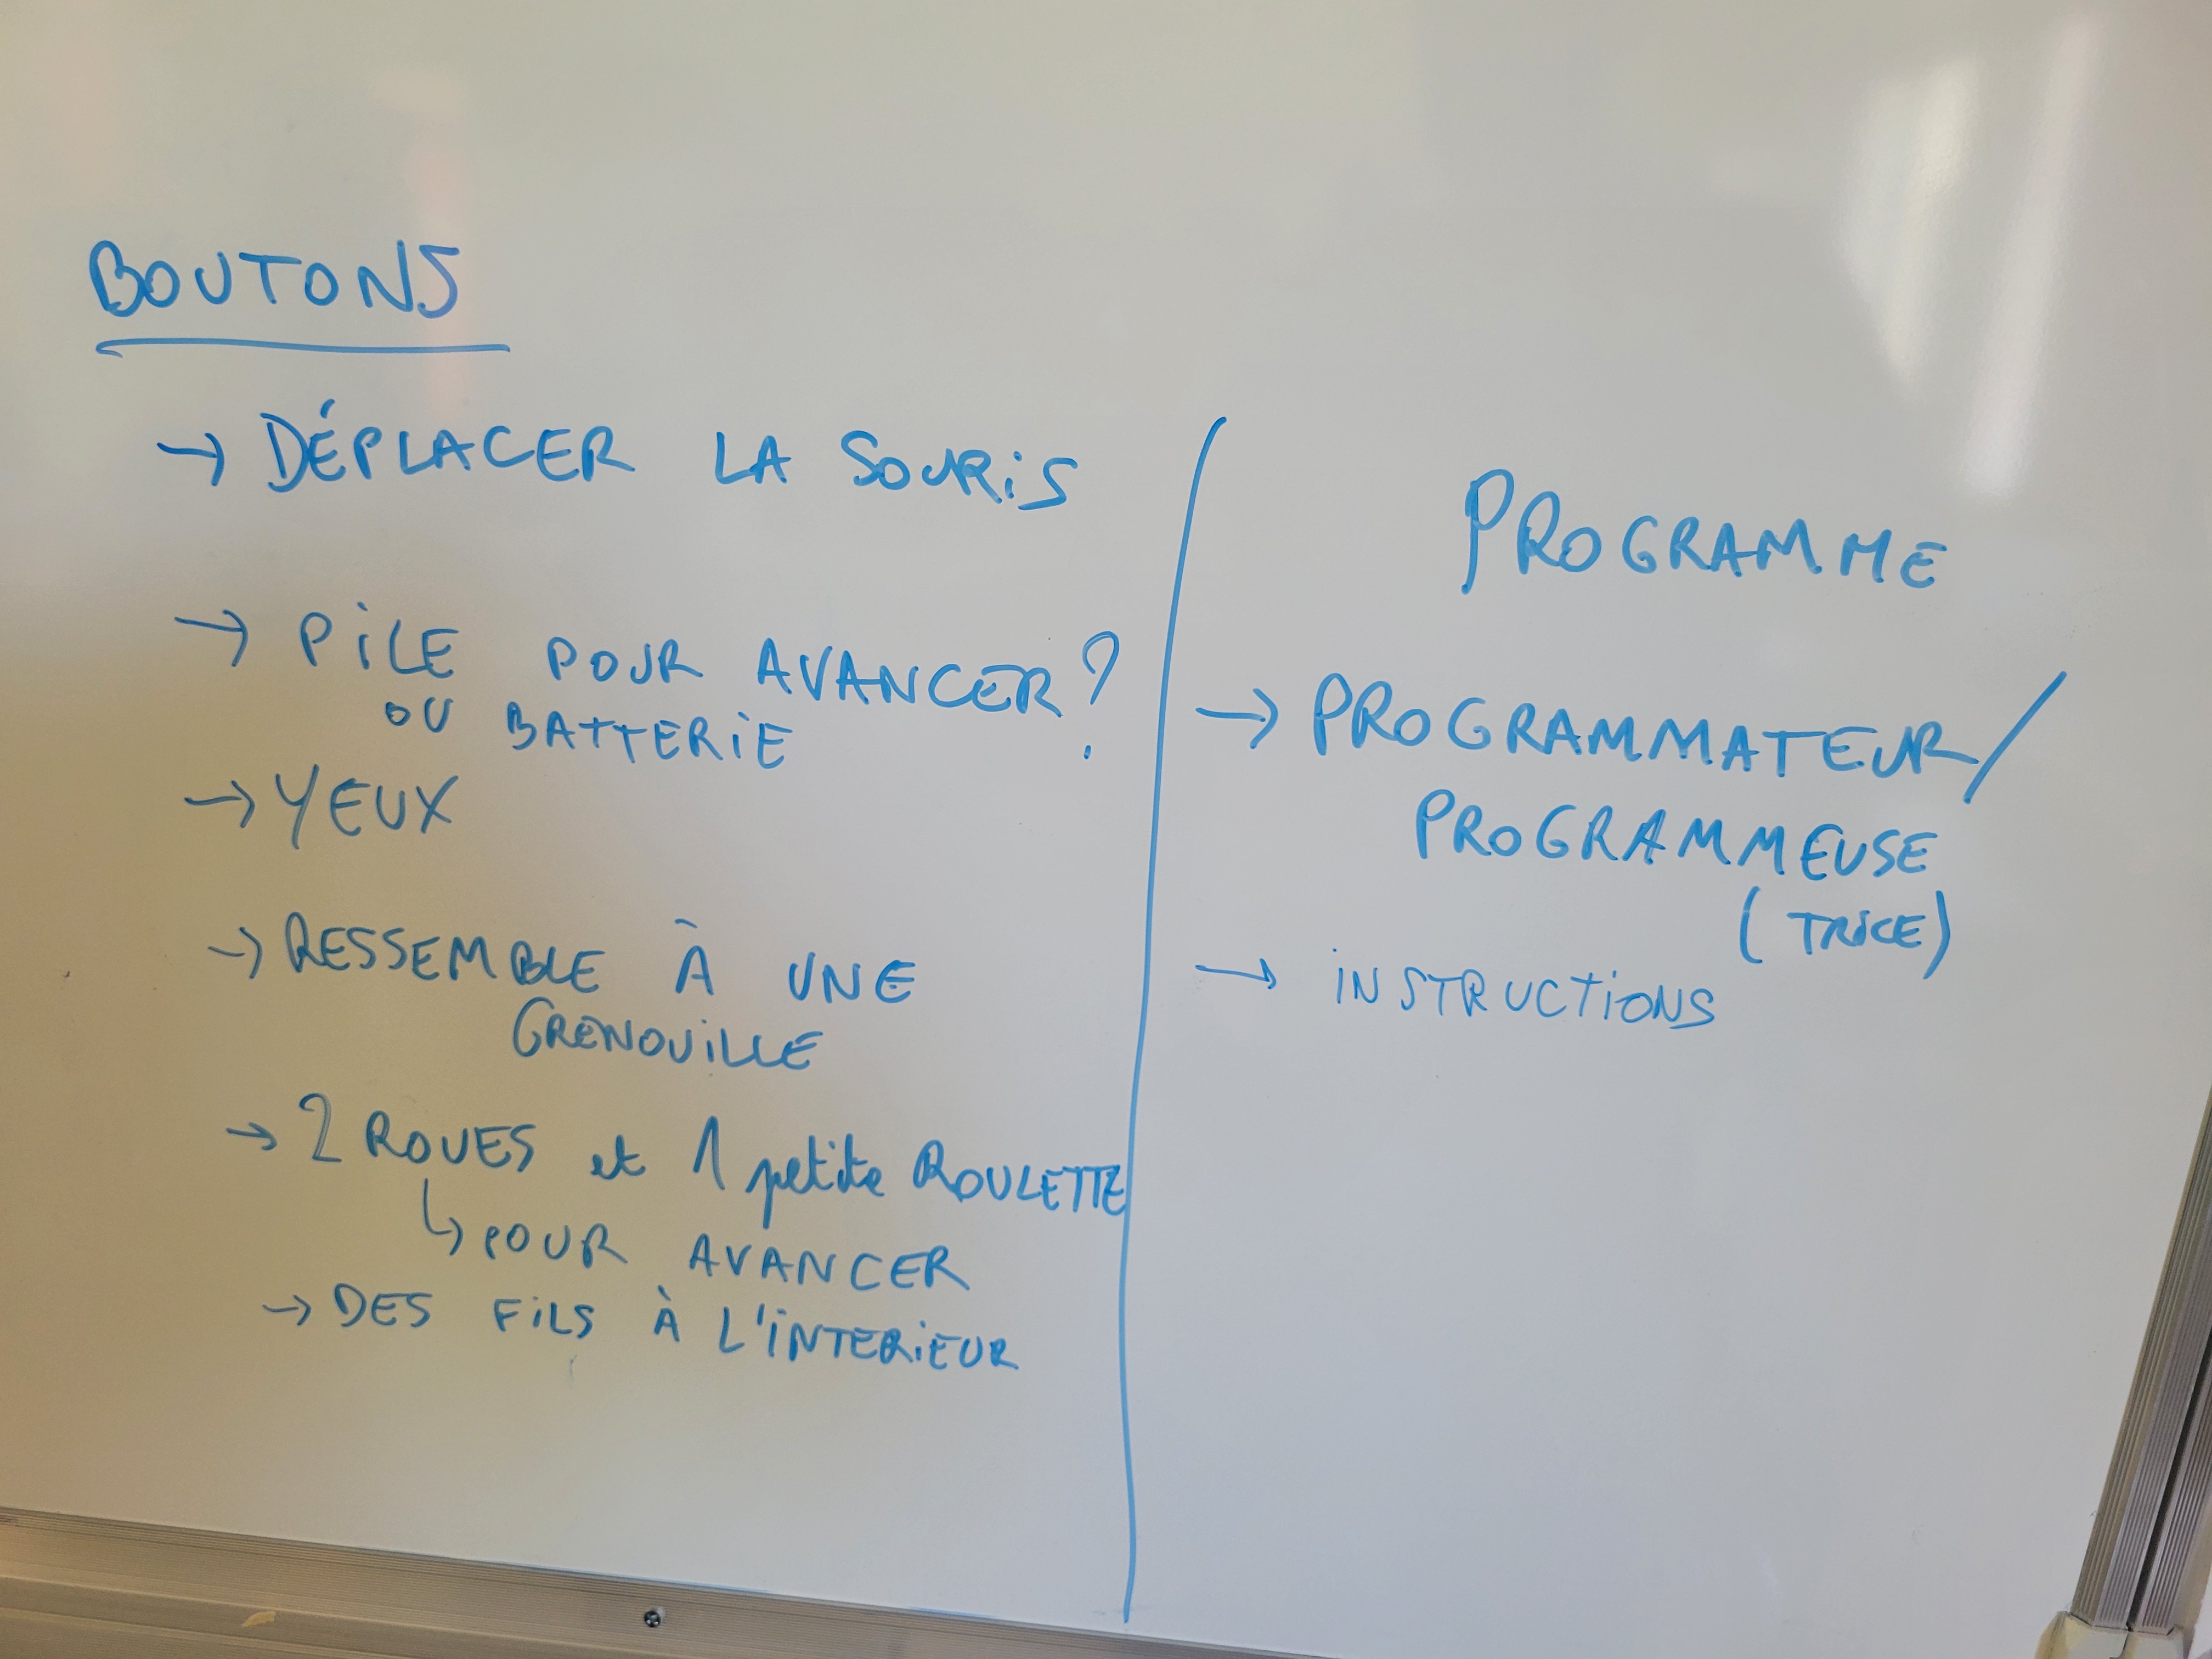 BOUTONS
→ DÉPLACER LA SOURIS
→ PILE POUR AVANCER ?
OU BATTERIE
→ YEUX
→ RESSEMBLE À UNE
GRENOUILLE
→ 2 ROUES et 1 petite ROULETTE
↳ POUR AVANCER
→ DES FILS À L'INTERIEUR
PROGRAMME
→ PROGRAMMATEUR/
PROGRAMMEUSE
(TRICE)
→ INSTRUCTIONS